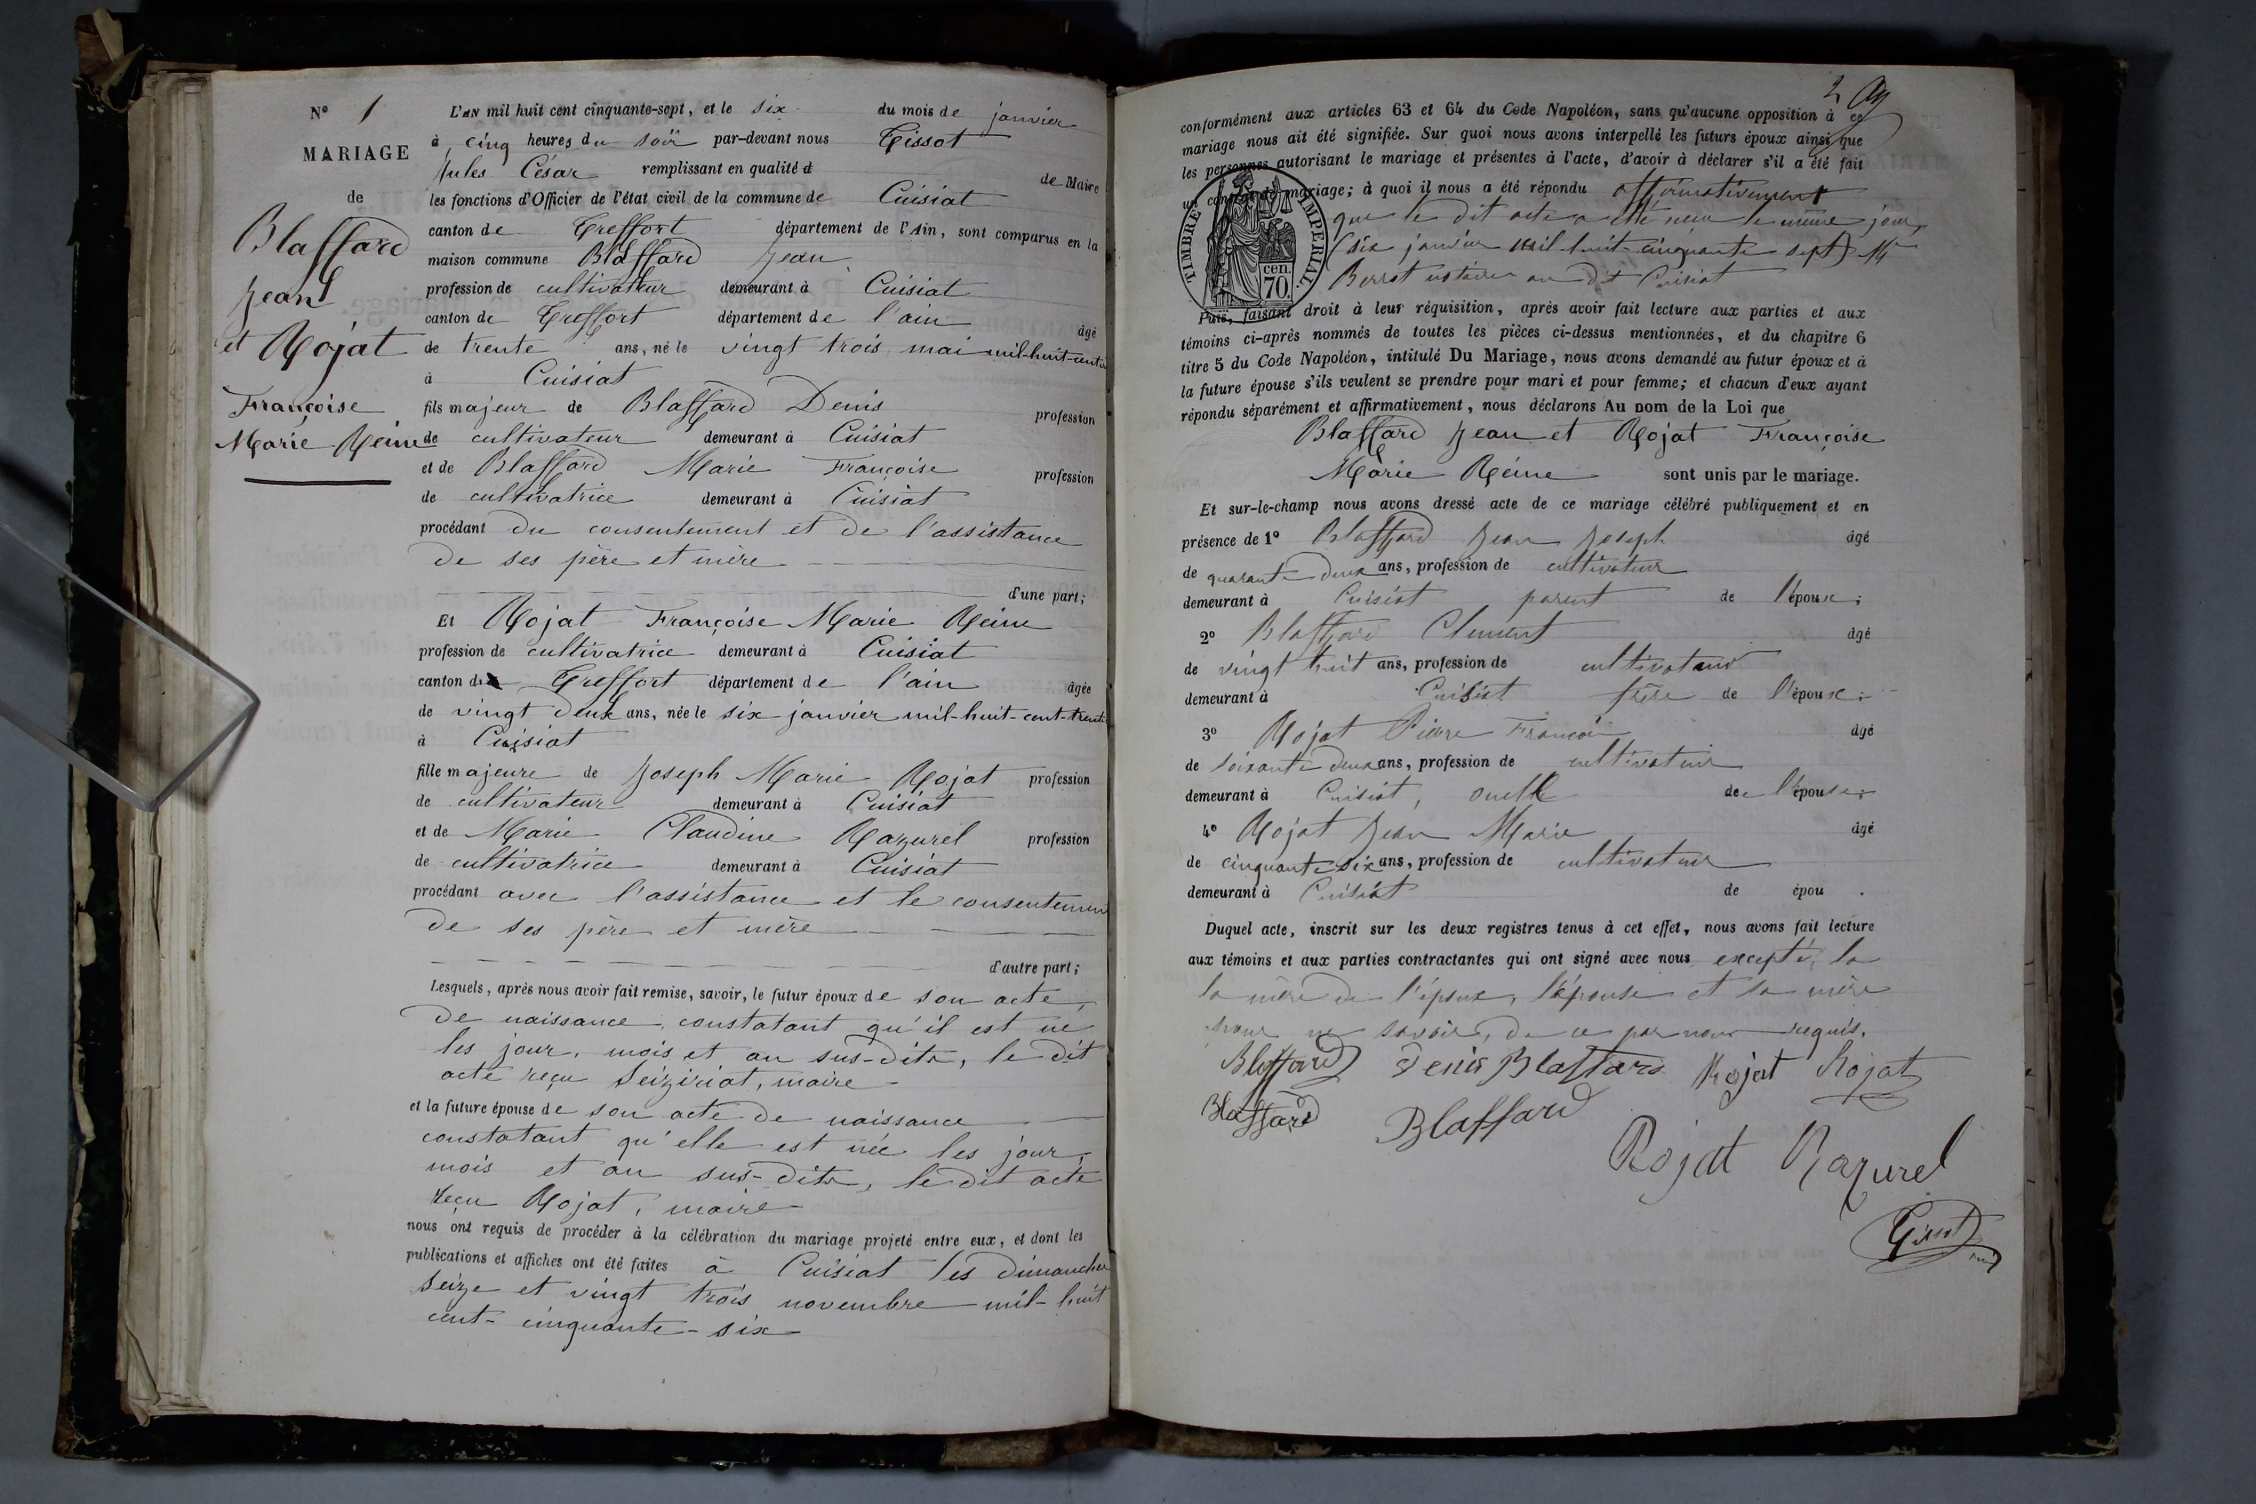 N° 1
MARIAGE
de
Blaffard
Jean
et Rojat
Françoise
Marie Reine
L'AN mil huit cent cinquante-sept, et le six du mois de janvier
à cinq heures du soir par-devant nous Tissot
Jules César remplissant en qualité de Maire
les fonctions d'Officier de l'état civil de la commune de Cuisiat
canton de Treffort département de l'Ain, sont comparus en la
maison commune Blaffard Jean
profession de cultivateur demeurant à Cuisiat
canton de Treffort département de l'ain âgé
de trente ans, né le vingt trois mai mil-huit-cent
à Cuisiat
fils majeur de Blaffard Denis profession
de cultivateur demeurant à Cuisiat
et de Blaffard Marie Françoise profession
de cultivatrice demeurant à Cuisiat
procédant du consentement et de l'assistance
de ses père et mère
d'une part;
Et Rojat Françoise Marie Reine
profession de cultivatrice demeurant à Cuisiat
canton de Treffort département de l'ain âgée
de vingt deux ans, née le six janvier mil-huit-cent-trente
à Cuisiat
fille majeure de Joseph Marie Rojat profession
de cultivateur demeurant à Cuisiat
et de Marie Claudine Razurel profession
de cultivatrice demeurant à Cuisiat
procédant avec l'assistance et le consentement
de ses père et mère
d'autre part;
Lesquels, après nous avoir fait remise, savoir, le futur époux de son acte
de naissance, constatant qu'il est né
les jour, mois et an sus-dits, le dit
acte reçu Seiziriat, maire
et la future épouse de son acte de naissance
constatant qu'elle est née les jour,
mois et an sus-dits, le dit acte
reçu Rojat, maire
nous ont requis de procéder à la célébration du mariage projeté entre eux, et dont les
publications et affiches ont été faites à Cuisiat les dimanches
seize et vingt trois novembre mil-huit
cent-cinquante-six
2
conformément aux articles 63 et 64 du Code Napoléon, sans qu'aucune opposition à ce
mariage nous ait été signifiée. Sur quoi nous avons interpellé les futurs époux ainsi que
les personnes autorisant le mariage et présentes à l'acte, d'avoir à déclarer s'il a été fait
un contrat de mariage; à quoi il nous a été répondu affirmativement
que le dit acte a été reçu le même jour,
(six janvier mil huit cinquante sept) Me
Berrot notaire au dit Cuisiat
TIMBRE IMPERIAL.
70 cen.
Puis, faisant droit à leur réquisition, après avoir fait lecture aux parties et aux
témoins ci-après nommés de toutes les pièces ci-dessus mentionnées, et du chapitre 6
titre 5 du Code Napoléon, intitulé Du Mariage, nous avons demandé au futur époux et à
la future épouse s'ils veulent se prendre pour mari et pour femme; et chacun d'eux ayant
répondu séparément et affirmativement, nous déclarons Au nom de la Loi que
Blaffard Jean et Rojat Françoise
Marie Reine sont unis par le mariage.
Et sur-le-champ nous avons dressé acte de ce mariage célébré publiquement et en
présence de 1° Blaffard Jean Joseph âgé
de quarante deux ans, profession de cultivateur
demeurant à Cuisiat parent de l'époux;
2° Blaffard Clément âgé
de vingt huit ans, profession de cultivateur
demeurant à Cuisiat frère de l'époux;
3° Rojat Pierre François âgé
de soixante deux ans, profession de cultivateur
demeurant à Cuisiat, oncle de l'épouse;
4° Rojat Jean Marie âgé
de cinquante six ans, profession de cultivateur
demeurant à Cuisiat de épou .
Duquel acte, inscrit sur les deux registres tenus à cet effet, nous avons fait lecture
aux témoins et aux parties contractantes qui ont signé avec nous excepté, la
la mère de l'époux, l'épouse et sa mère
pour ne savoir, de ce par nous requis.
Blaffard Denis Blaffard Rojat Rojat
Blaffard Blaffard
Rojat Razurel
Tissot